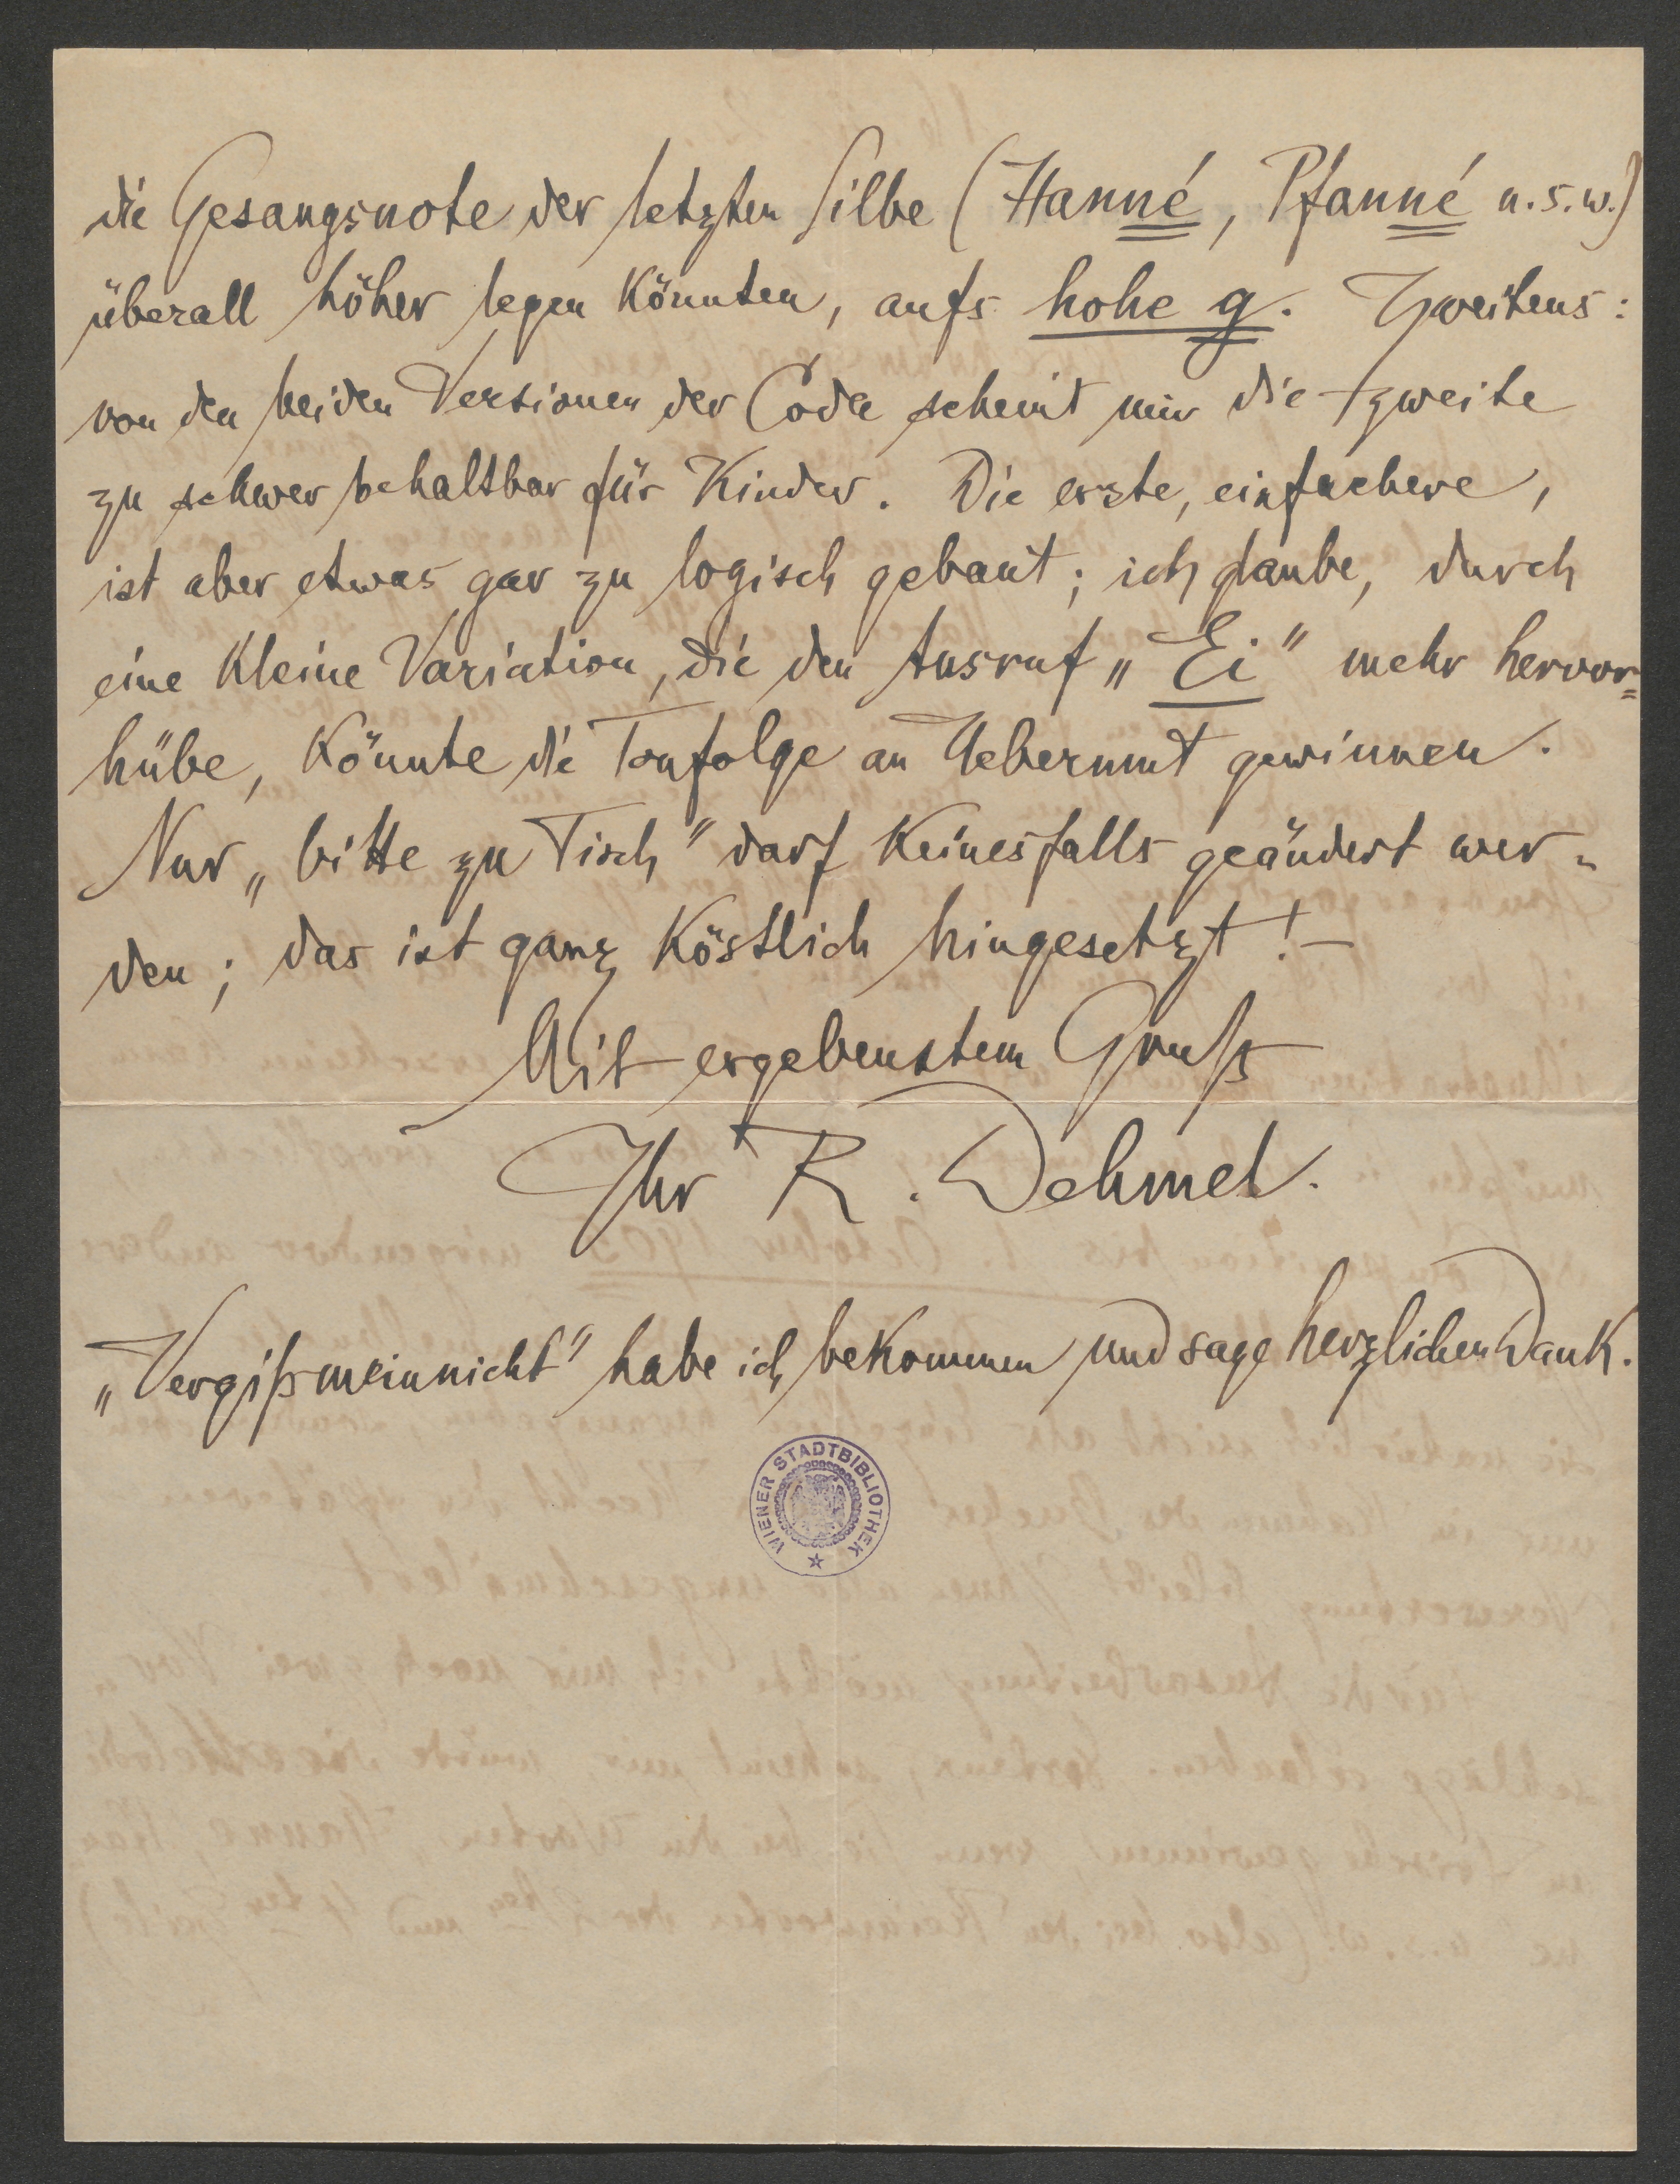 die Gesangsnote der letzten Silbe (Hanné, Pfanné u.s.w.)
überall höher legen könnten, aufs hohe g. Zweitens:
von den beiden Versionen der Coda scheint mir die zweite
zu schwer behaltbar für Kinder. Die erste, einfachere,
ist aber etwas gar zu logisch gebaut; ich glaube, durch
eine kleine Variation, die den Ausruf „Ei" mehr hervor=
hübe, könnte die Tonfolge an Uebermut gewinnen.
Nur „bitte zu Tisch" darf keinesfalls geändert wer-
den; das ist ganz köstlich hingesetzt! —
Mit ergebenstem Gruß
Ihr R. Dehmel.
„Vergißmeinnicht" habe ich bekommen und sage herzlichen Dank.
WIENER STADTBIBLIOTHEK